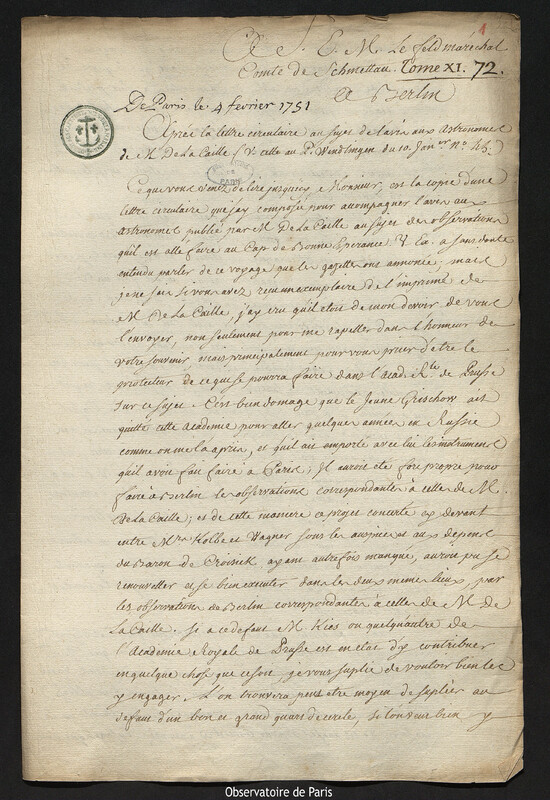 1
A S. E. M. Le feld maréchal
Comte de Schmettau. Tome XI. 72.
A Berlin
De Paris le 4 fevrier 1751
Après la lettre circulaire au sujet de l'avis aux Astronomes
de M. De la Caille (V. celle au P. Wendlingen du 10 Janver No. 45.)
Ce que vous venez de lire jusqu'icy, Monsieur, est la copie d'une
lettre circulaire que j'ay composée pour accompagner l'avis aux
astronomes publié par M. De la Caille au sujet des observations
qu'il est allé faire au Cap de Bonne Esperance. V. Ex. a sans doute
entendu parler de ce voyage que les gazettes ont annoncé, mais
je ne sais si vous avez reçu un exemplaire de l'imprimé de
M. De la Caille, j'ay cru qu'il etoit de mon devoir de vous
l'envoyer, non seulement pour me rapeller dans l'honneur de
votre souvenir mais principalement pour vous prier d'être le
protecteur de ce qui se pourra faire dans l'Acad. Rle. de Prusse
sur ce sujet. C'est bien domage que le Jeune Grischow ait
quitté cette Academie pour aller quelques années en Russie
comme on me l'a apris, et qu'il ait emporté avec lui les instrumens
qu'il avoit fait faire à Paris; Il auroit eté fort propre pour
faire à Berlin les observations correspondantes à celles de M.
De la Caille; et de cette maniere ce projet concerté cy devant
entre Mrs Kolbe et Wagner sous les auspices et aux depens
du Baron de Crosick, ayant autrefois manqué, auroit pu se
renouveller et se bien executer dans les deux memes lieux, par
les observations de Berlin correspondantes à celles de M. De
La Caille. Si a ce defaut M. Kies ou quelqu'autre de
l'Academie Royale de Prusse est en etat d'y contribuer
en quelque chose que ce soit, je vous suplie de vouloir bien les
y engager. L'on trouvera peut être moyen de supléer au
defaut d'un bon et grand quart de cercle, si l'on veut bien y
Observatoire de Paris